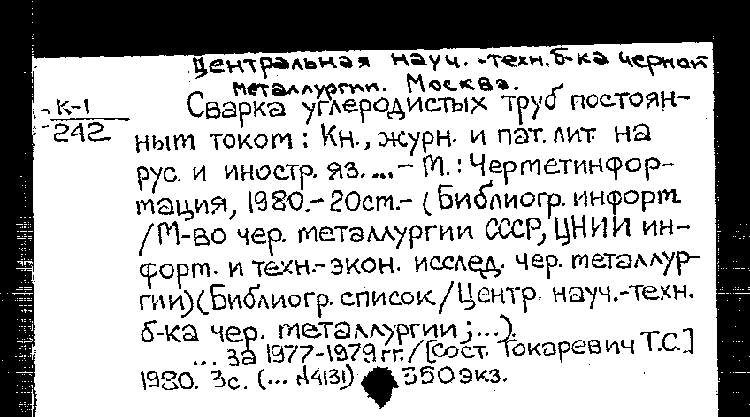 Центральная науч.-техн. б-ка черной
металлургии. Москва.
К-1
242
Сварка углеродистых труб постоян-
ным током: Кн., журн. и пат. лит на
рус. и иностр. яз. ... – М.: Черметинфор-
мация, 1980. – 20см. – (Библиогр. информ.
/М-во чер. металлургии СССР, ЦНИИ ин-
форм. и техн.-экон. исслед. чер. металлур-
гии) (Библиогр. список / Центр. науч.-техн.
б-ка чер. металлургии; ...).
... за 1977-1979 гг. / [Сост. Токаревич Т.С.]
1980. 3с. (... №4131) 350 экз.